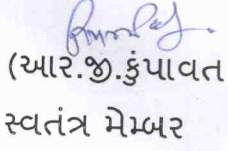 (આર.જી.કુંપાવત
સ્વતંત્ર મેમ્બર